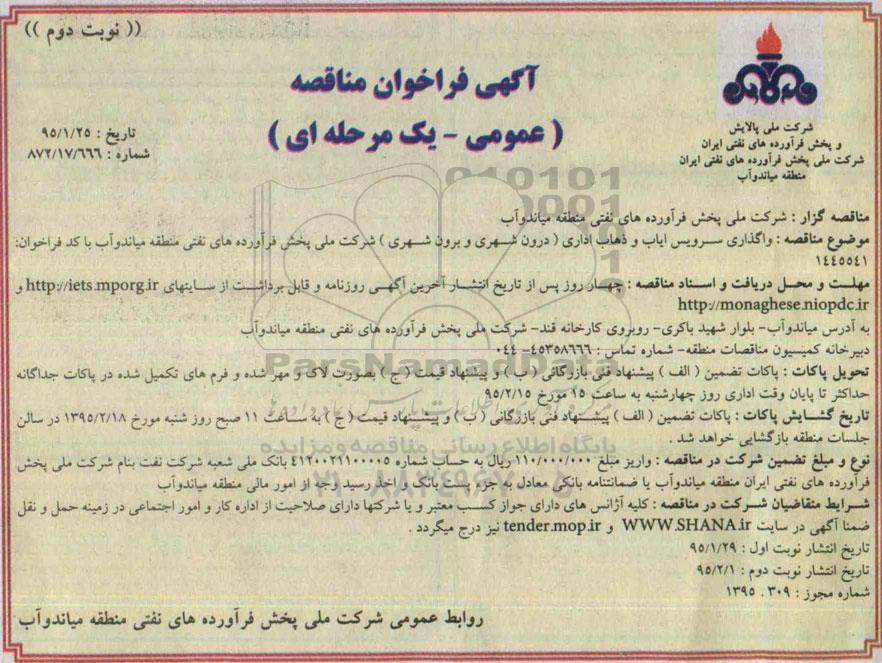 (( نوبت دوم ))
آگهی فراخوان مناقصه
( عمومی - یک مرحله ای )
تاریخ : ۹۵/۱/۲۵
شماره : ۸۷۲/۱۷/۶۶۶
شرکت ملی پالایش
و پخش فرآورده های نفتی ایران
شرکت ملی پخش فرآورده های نفتی ایران
منطقه میاندوآب
مناقصه گزار : شرکت ملی پخش فرآورده های نفتی منطقه میاندوآب
موضوع مناقصه : واگذاری سرویس ایاب و ذهاب اداری ( درون شهری و برون شهری ) شرکت ملی پخش فرآورده های نفتی منطقه میاندوآب با کد فراخوان:
۱۴۴۵۵۴۱
مهلت و محل دریافت و اسناد مناقصه : چهار روز پس از تاریخ انتشار آخرین آگهی روزنامه و قابل برداشت از سایتهای http://iets.mporg.ir و
http://monaghese.niopdc.ir
به آدرس میاندوآب- بلوار شهید باکری- روبروی کارخانه قند- شرکت ملی پخش فرآورده های نفتی منطقه میاندوآب
دبیرخانه کمیسیون مناقصات منطقه- شماره تماس : ۴۵۳۵۸۶۶۶- ۰۴۴
تحویل پاکات : پاکات تضمین ( الف ) پیشنهاد فنی بازرگانی ( ب ) و پیشنهاد قیمت ( ج ) بصورت لاک و مهر شده و فرم های تکمیل شده در پاکات جداگانه
حداکثر تا پایان وقت اداری روز چهارشنبه به ساعت ۱۵ مورخ ۹۵/۲/۱۵
تاریخ گشایش پاکات : پاکات تضمین ( الف ) پیشنهاد فنی بازرگانی ( ب ) و پیشنهاد قیمت ( ج ) به ساعت ۱۱ صبح روز شنبه مورخ ۱۳۹۵/۲/۱۸ در سالن
جلسات منطقه بازگشایی خواهد شد .
نوع و مبلغ تضمین شرکت در مناقصه : واریز مبلغ ۱۱۰/۰۰۰/۰۰۰ ریال به حساب شماره ۴۱۲۰۰۲۹۱۰۰۰۰۵ بانک ملی شعبه شرکت نفت بنام شرکت ملی پخش
فرآورده های نفتی ایران منطقه میاندوآب یا ضمانتنامه بانکی معادل به جزء پست بانک و اخذ رسید وجه از امور مالی منطقه میاندوآب
شرایط متقاضیان شرکت در مناقصه : کلیه آژانس های دارای جواز کسب معتبر و یا شرکتها دارای صلاحیت از اداره کار و امور اجتماعی در زمینه حمل و نقل
ضمنا آگهی در سایت WWW.SHANA.ir و tender.mop.ir نیز درج میگردد .
تاریخ انتشار نوبت اول : ۹۵/۱/۲۹
تاریخ انتشار نوبت دوم : ۹۵/۲/۱
شماره مجوز : ۳۰۹ . ۱۳۹۵
روابط عمومی شرکت ملی پخش فرآورده های نفتی منطقه میاندوآب
ParsNamadData
پایگاه اطلاع رسانی مناقصه و مزایده